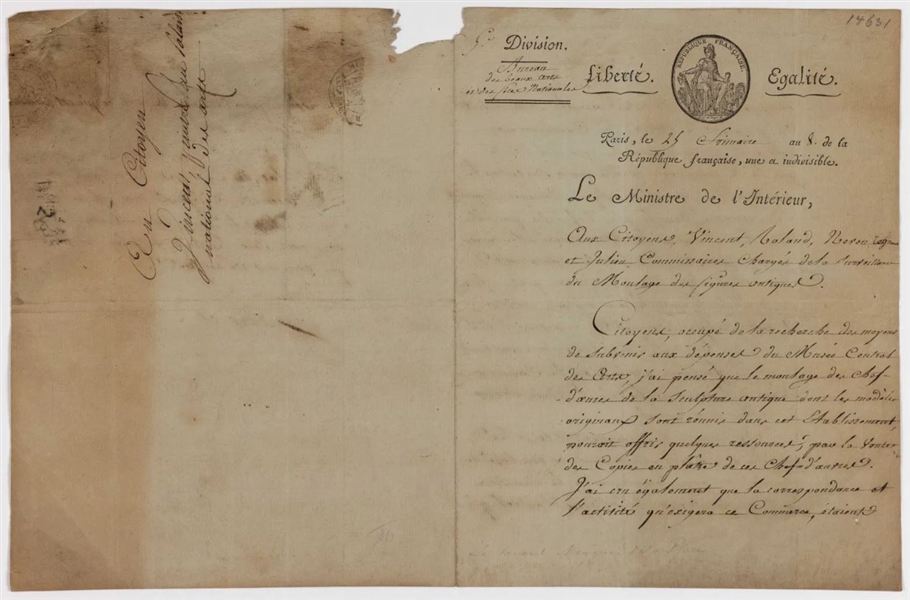 Au Citoyen
Vincent, peintre au Palais
national des arts
14631
5e Division.
Bureau
des beaux arts
et des fêtes Nationales
Liberté.
RÉPUBLIQUE FRANÇAISE
Egalité.
Paris, le 25 frimaire an 8. de la
République française, une et indivisible.
Le Ministre de l'Intérieur,
Aux Citoyens, Vincent, Roland,
et Julien Commissaires chargés de la surveillance
du Moulage des figures antiques.
Citoyens, occupé de la recherche des moyens
de subvenir aux dépenses du Musée Central
des Arts, j'ai pensé que le moulage des Chef-
d'œuvres de la sculpture antique dont les modèles
originaux sont réunis dans cet Etablissement,
pouvoit offrir quelques ressources, par la Vente
des Copies en plâtre de ces Chefs d'œuvres.
J'ai cru également que la correspondance et
l'activité qu'exigera ce Commerce, étaient